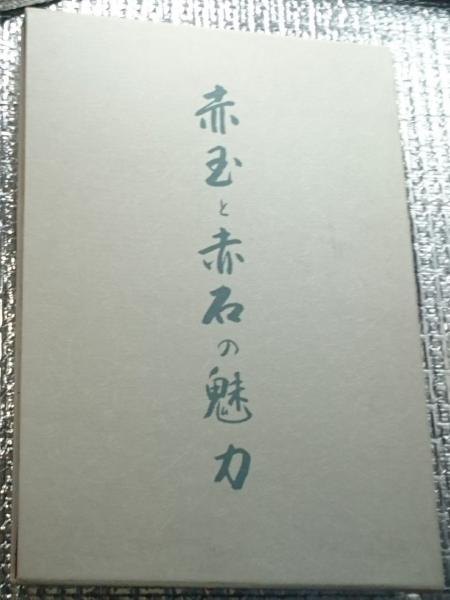 赤玉と赤石の魅力